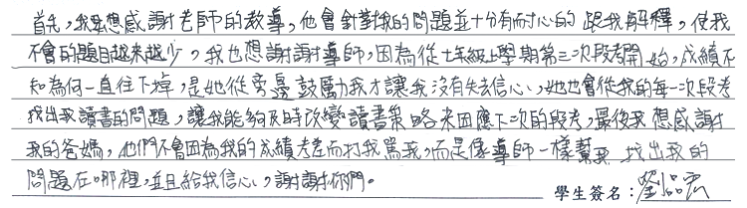 首先,我是想感謝老師的教導,他會針對我的問題並十分有耐心的 跟我解釋,使我
不會的題目越來越少。我也想謝謝導師,因為從七年級上學期第三次段考開始,成績不
知為何一直往下掉,是她從旁邊鼓勵我才讓我沒有失去信心,她也會從我的每一次段考
找出我讀書的問題,讓我能夠及時改變讀書策略來因應下一次的段考,最後我想感謝
我的爸媽,他們不會因為我的成績考差而打我罵我,而是像導師一樣幫我 找出我的
問題在哪裡,並且給我信心,謝謝你們。
學生簽名:劉品宏